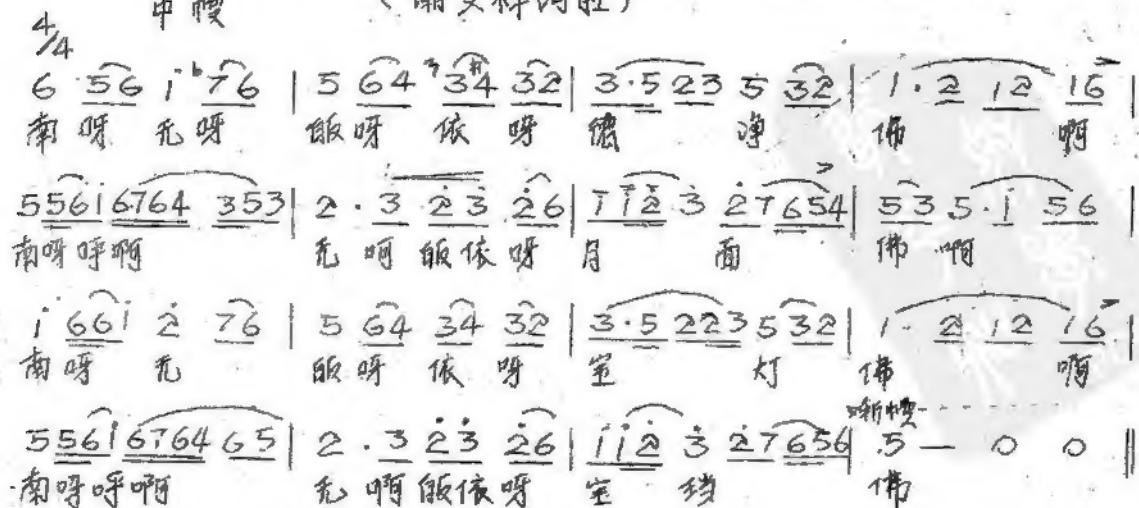 4/4 中慢
6 56 i b76 | 5 64 34 32 | 3·5 23 5 32 | 1·2 12 16
南呀 无呀 皈呀 依 呀 德 净 佛 啊
5 56i 6764 353 | 2·3 23 26 | 112 3 27654 | 53 5·i 56 |
南呀呼啊 无 呵 皈依 呀 月 面 佛 啊
i 66i 2 76 | 5 64 34 32 | 3·5 223 5 32 | 1· 2 12 16
南呀 无 皈呀 依 呀 宝 灯 佛 啊
渐慢
5 56i 6764 65 | 2·3 23 26 | ii2 3 27656 | 5 — 0 0 ||
南呀呼啊 无 啊 皈依呀 宝 珰 佛